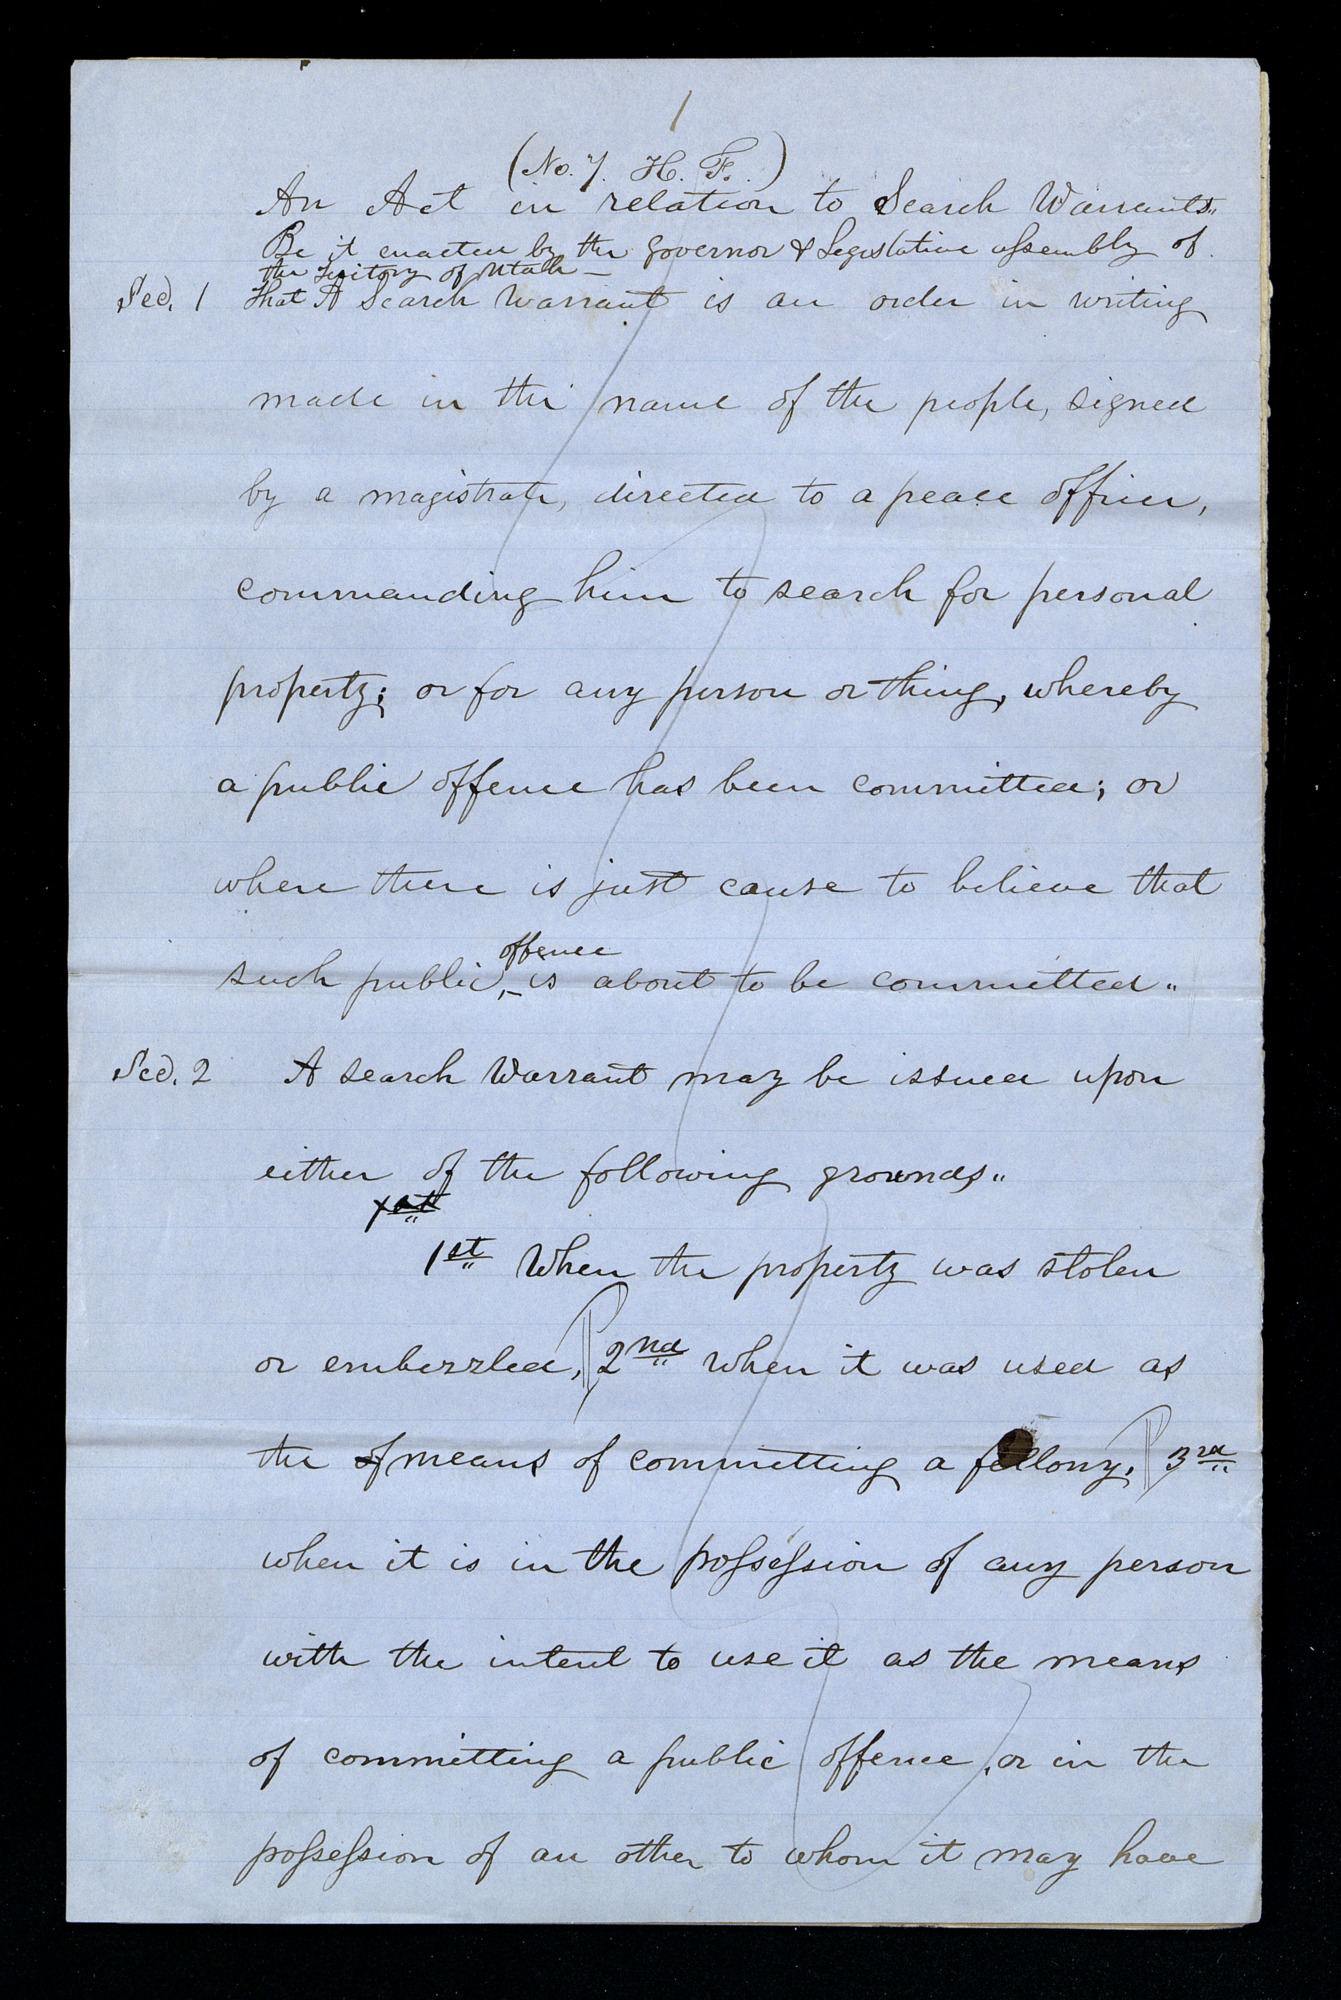 1
(No. 7. H. F.)
An Act in relation to Search Warrants.
Be it enacted by the Governor & Legislative assembly of
the Teritory of Utah —
Sec. 1 That A Search Warrant is an order in writing
made in the name of the people, signed
by a magistrate, directed to a peace officer,
commanding him to search for personal
property; or for any person or thing, whereby
a public offence has been committed; or
where there is just cause to believe that
offence
such public, is about to be committed"
Sec. 2 A search Warrant may be issued upon
either of the following grounds"
1st When the property was stolen
or embezzled, 2nd When it was used as
the of means of committing a fellony, 3rd
when it is in the possession of any person
with the intent to use it as the means
of committing a public offence, or in the
possession of an other to whom it may have